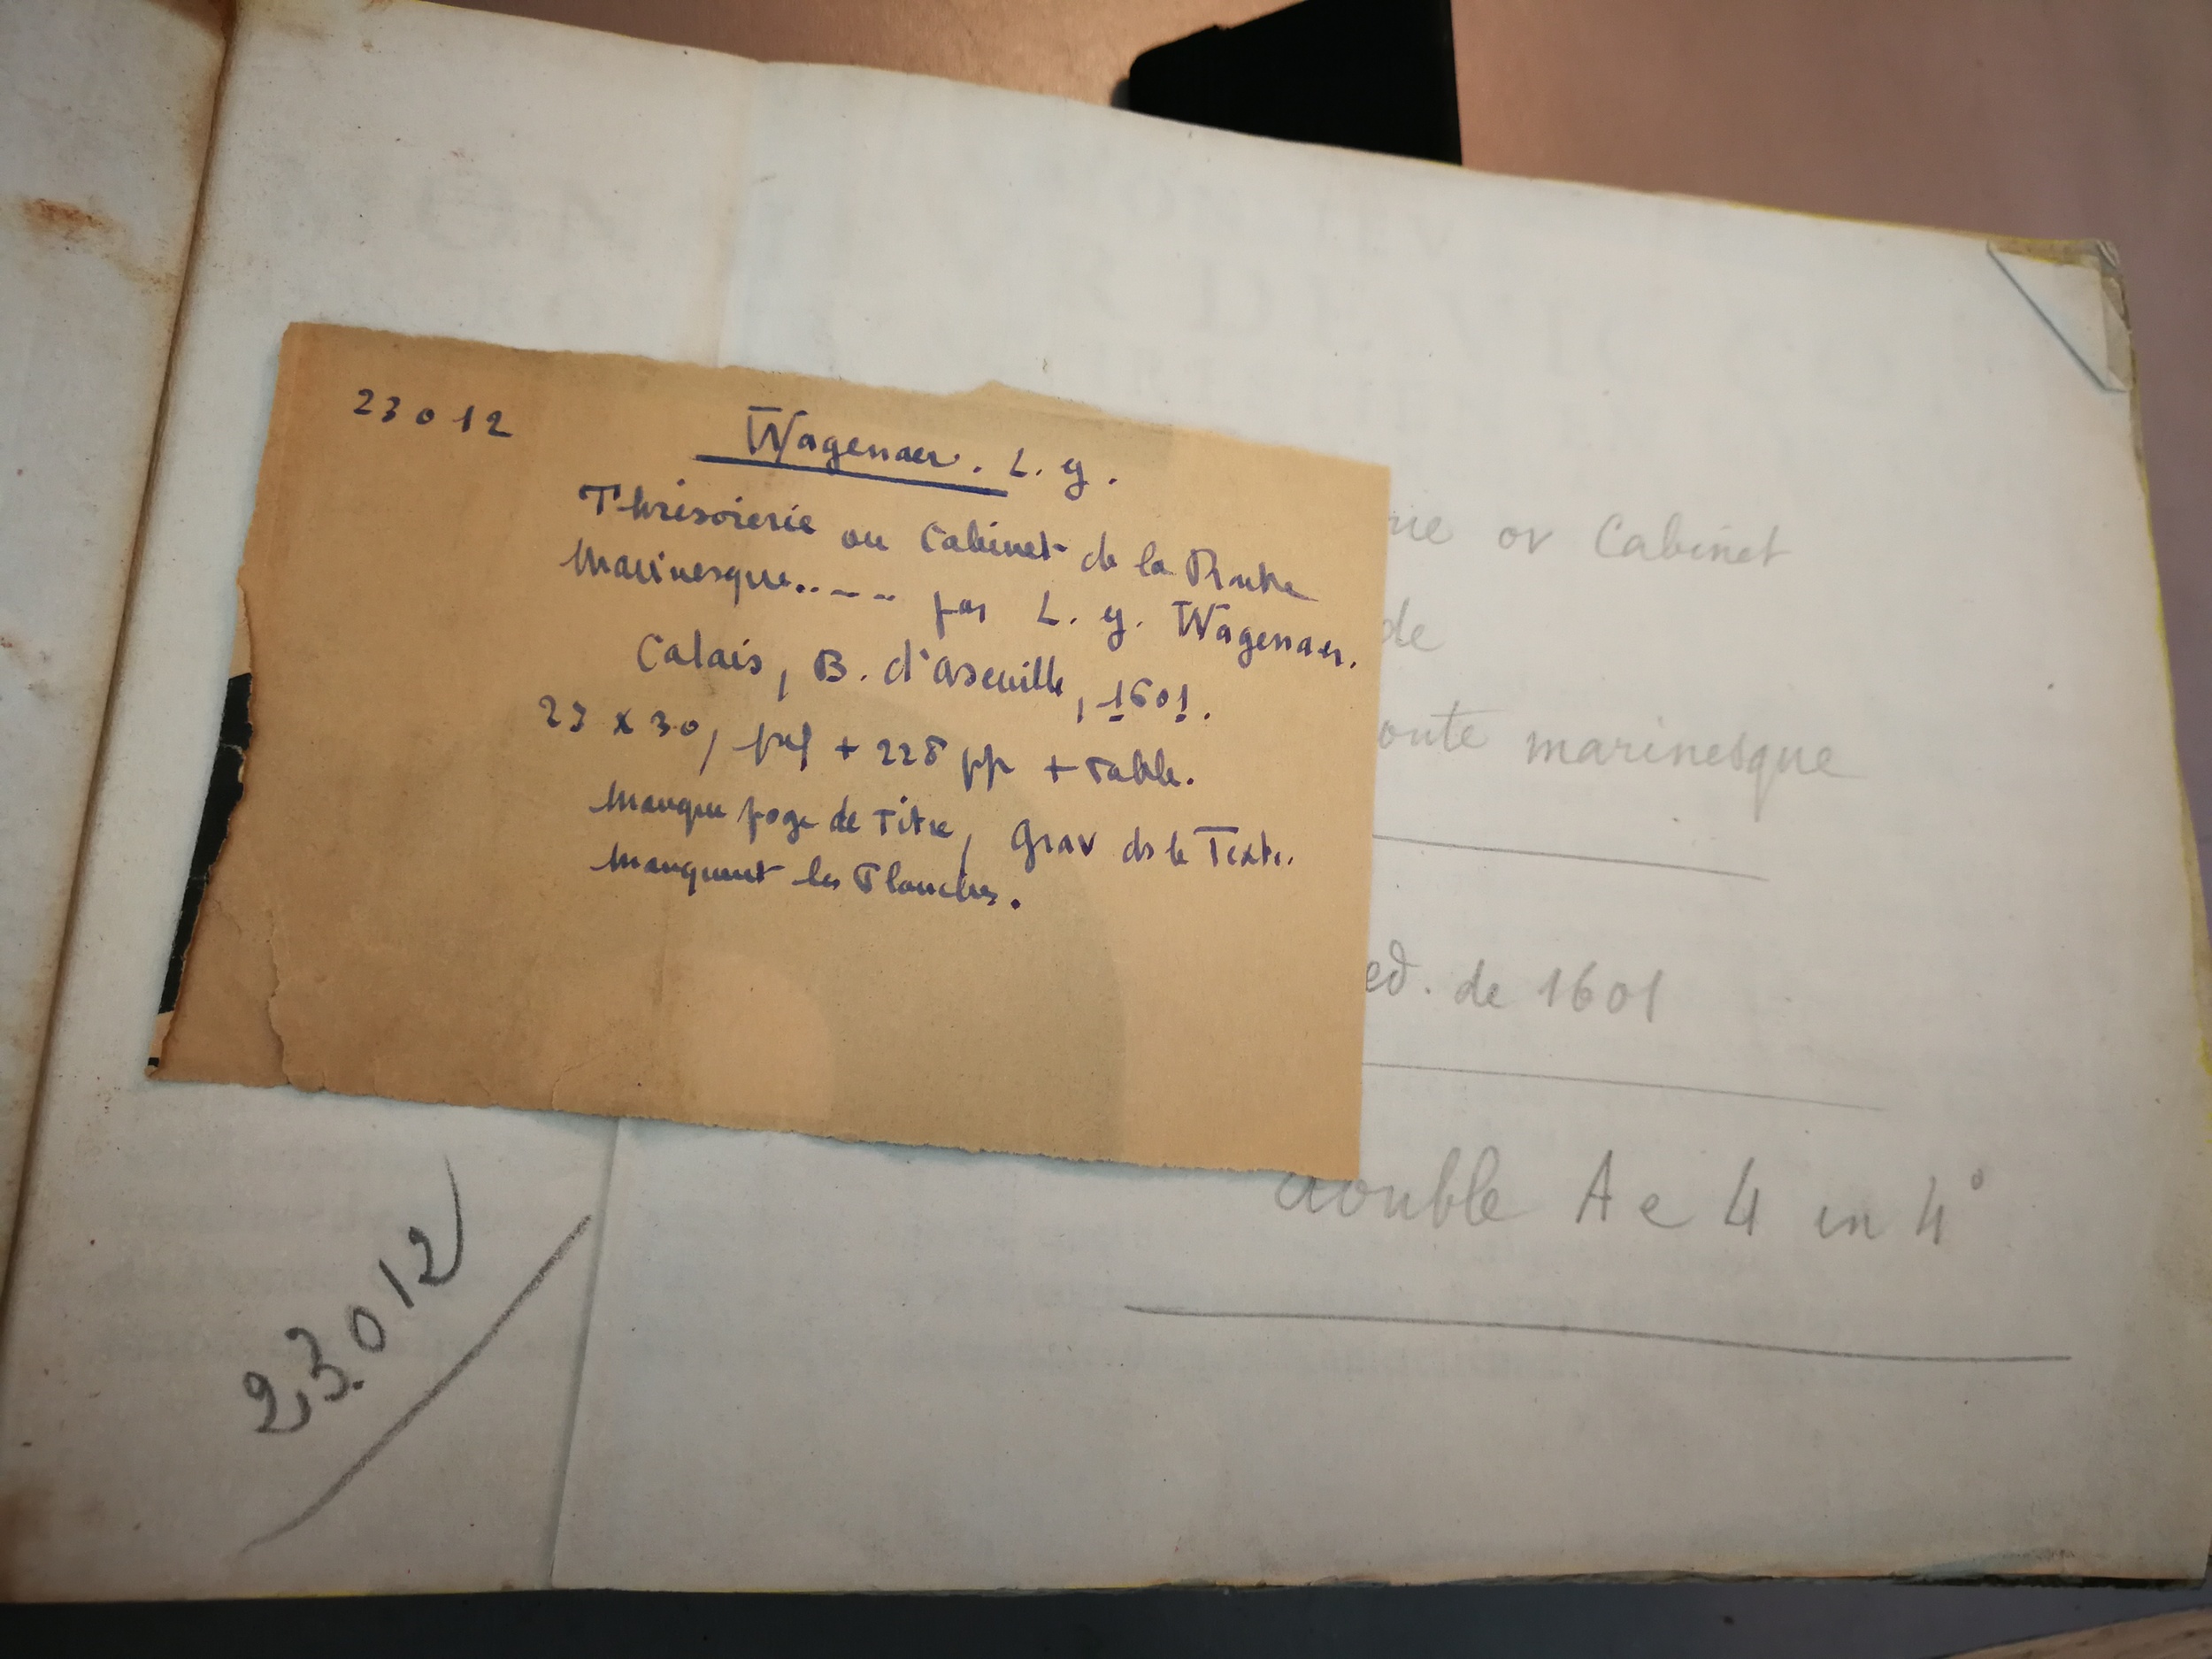 23012
Wagenaer. L. y.
Thrisorerie ou Cabinet de la Route
Marinesque..--- par L. y. Wagenaer.
Calais, B. d'Aseuille, 1601.
23 x 30, pref + 228 pp + Table.
Manque page de Titre, Grav ds le Texte.
Manquent les Planches.
rie ov Cabinet
de
oute marinesque
ed. de 1601
double A e 4 in 4°
23.012